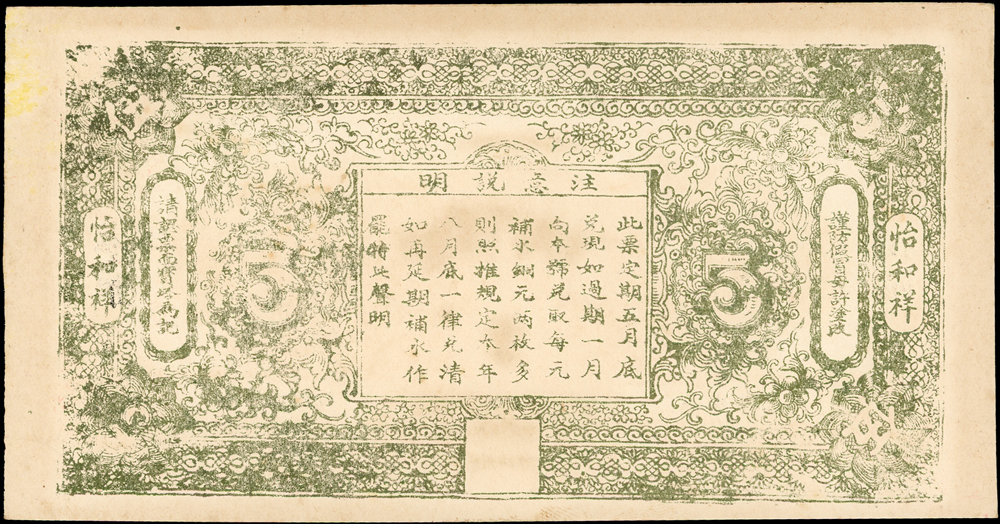 注意說明
此票定期五月底
兌現如過期一月
向本號兌取每元
補水銅元兩枚多
則照推規定本年
八月底一律兌清
如再延期補水作
罷特此聲明
怡和祥
怡和祥
5
5